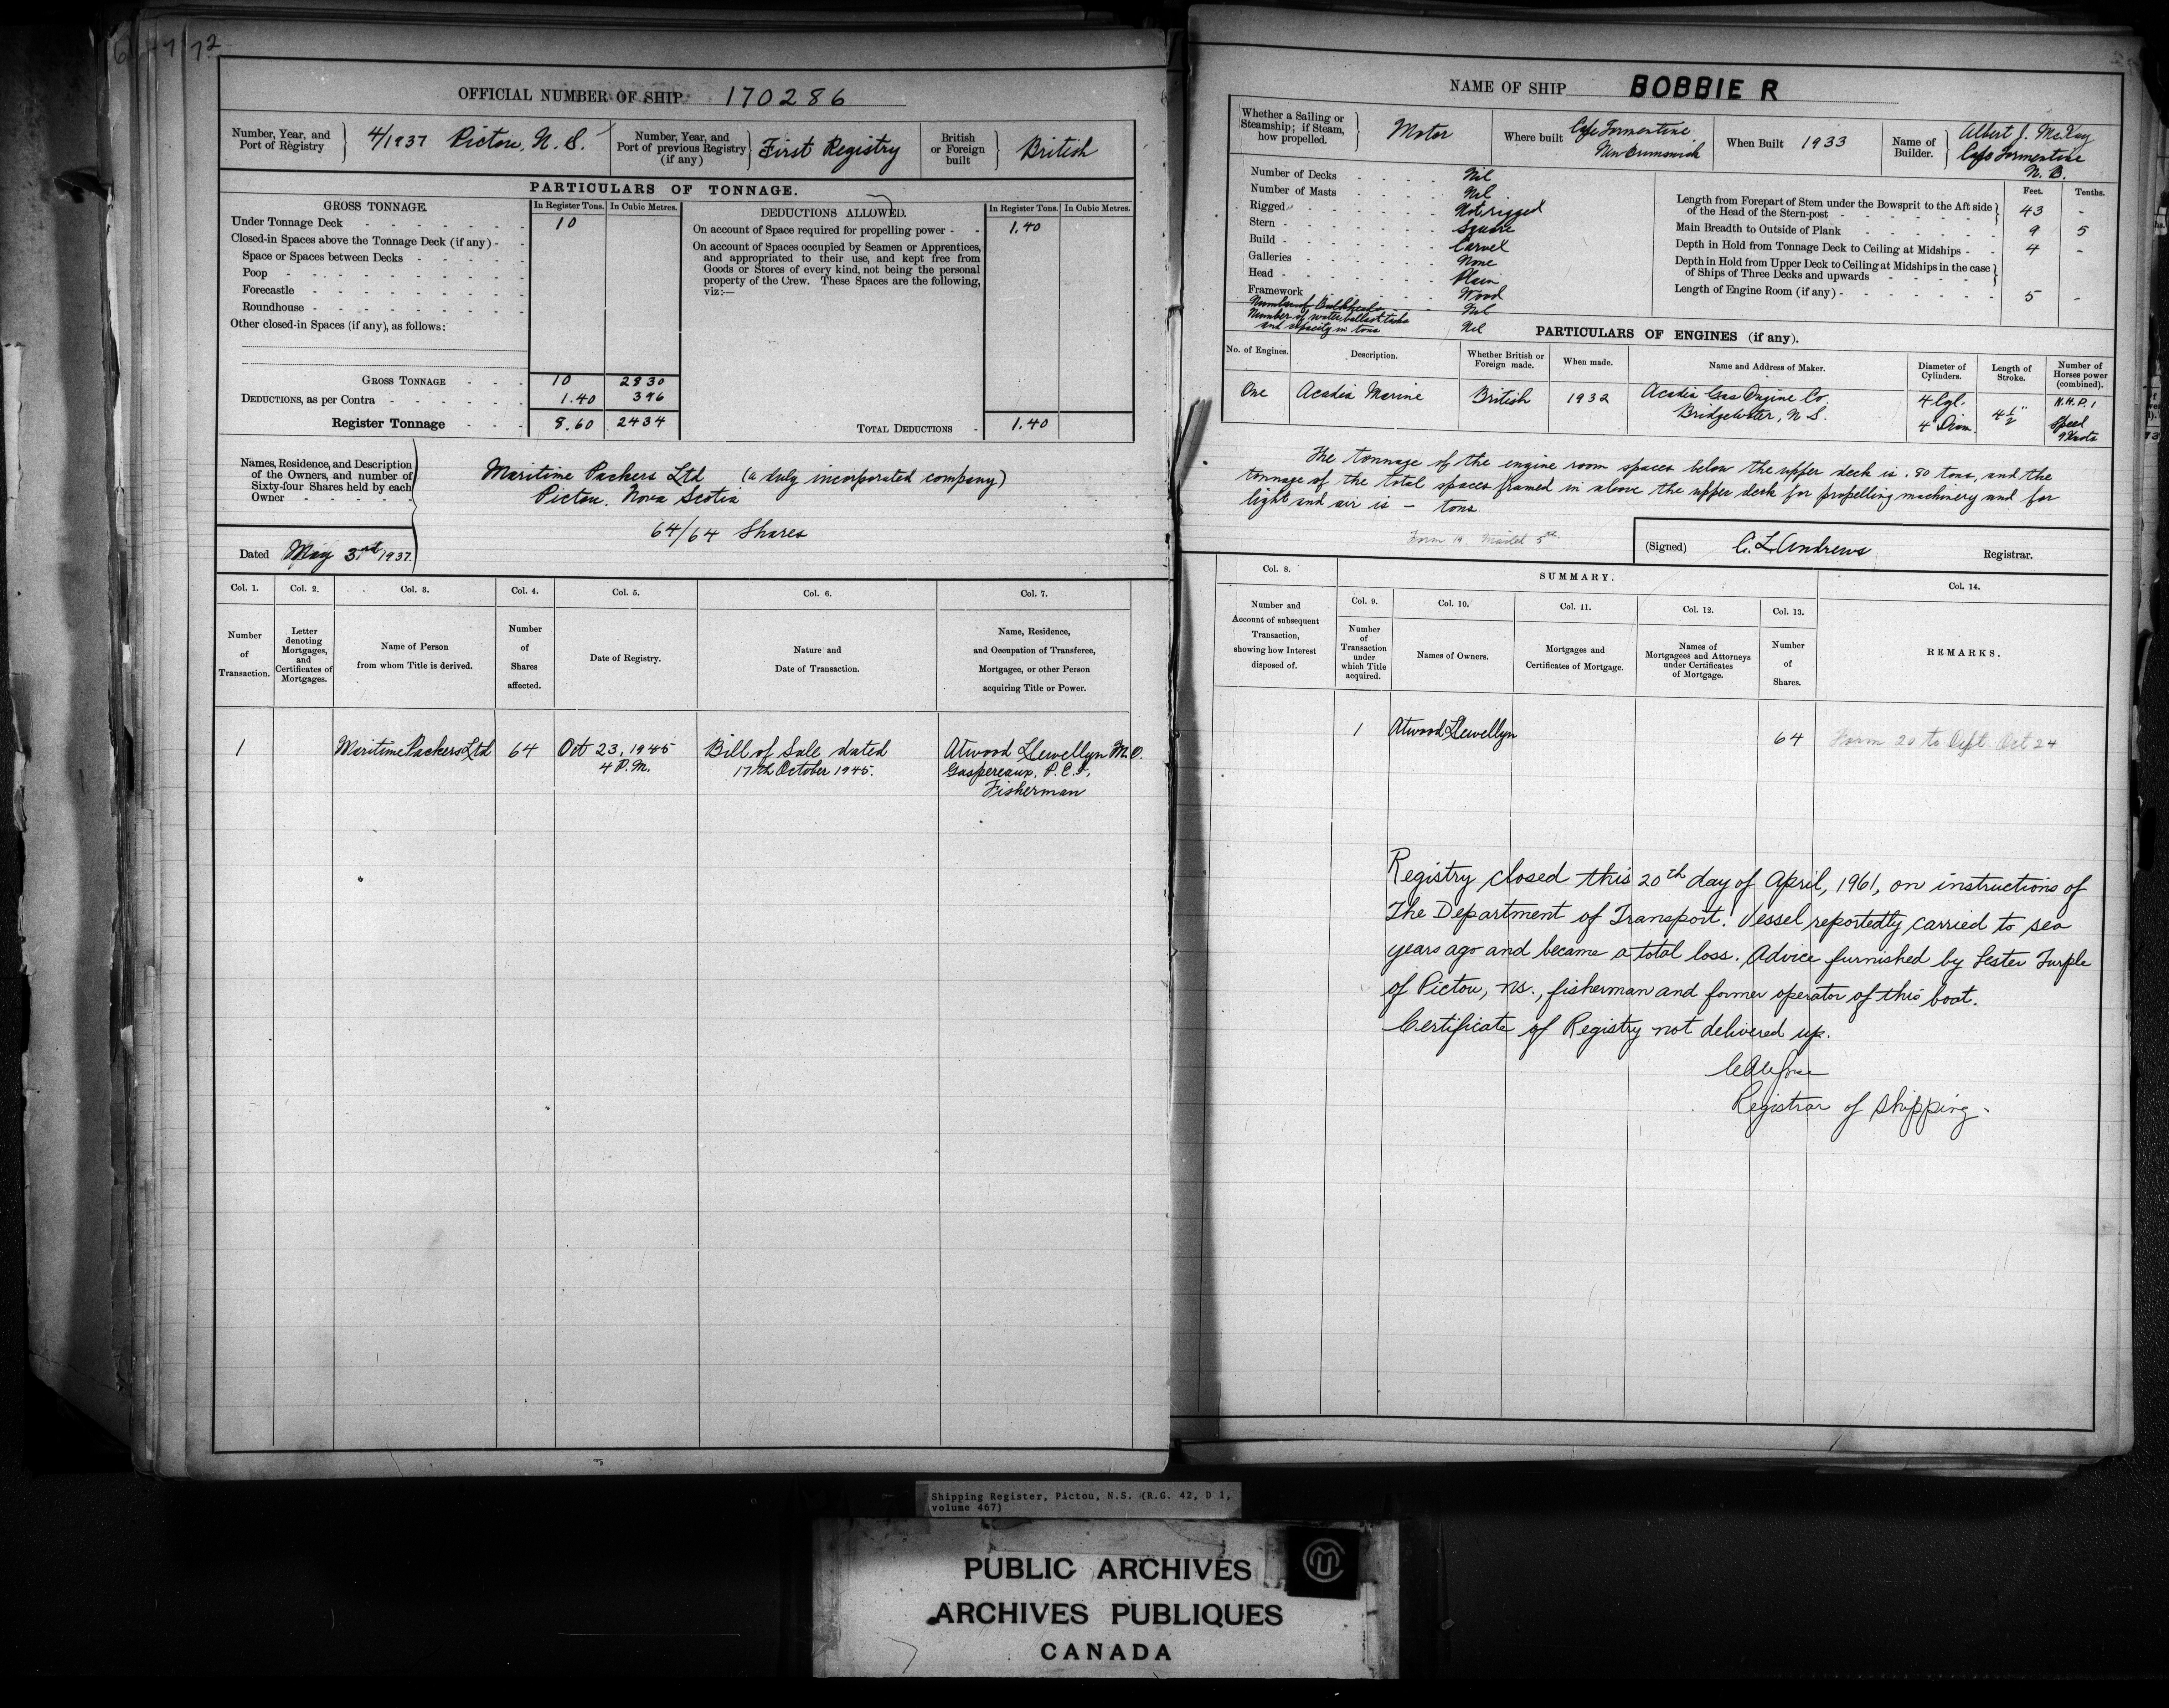 72
OFFICIAL NUMBER OF SHIP 170286
Number, Year, and Port of Registry 4/1937 Pictou, N.S.
Number, Year, and Port of previous Registry (if any) First Registry
British or Foreign built British
PARTICULARS OF TONNAGE.
GROSS TONNAGE. In Register Tons. In Cubic Metres.
DEDUCTIONS ALLOWED. In Register Tons. In Cubic Metres.
Under Tonnage Deck 10
Closed-in Spaces above the Tonnage Deck (if any)
Space or Spaces between Decks
Poop
Forecastle
Roundhouse
Other closed-in Spaces (if any), as follows:
On account of Space required for propelling power 1.40
On account of Spaces occupied by Seamen or Apprentices,
and appropriated to their use, and kept free from
Goods or Stores of every kind, not being the personal
property of the Crew. These Spaces are the following,
viz:—
GROSS TONNAGE 10 2830
DEDUCTIONS, as per Contra 1.40 396
Register Tonnage 8.60 2434
TOTAL DEDUCTIONS 1.40
Names, Residence, and Description
of the Owners, and number of
Sixty-four Shares held by each
Owner
Maritime Packers Ltd (a duly incorporated company)
Pictou, Nova Scotia
64/64 Shares
Dated May 3rd 1937.
Col. 1. Col. 2. Col. 3. Col. 4. Col. 5. Col. 6. Col. 7.
Number of Transaction.
Letter denoting Mortgages, and Certificates of Mortgages.
Name of Person from whom Title is derived.
Number of Shares affected.
Date of Registry.
Nature and Date of Transaction.
Name, Residence, and Occupation of Transferee, Mortgagee, or other Person acquiring Title or Power.
1 Maritime Packers Ltd 64 Oct 23, 1945 Bill of Sale dated Atwood Llewellyn M.
4 P.M. 17th October 1945. Gaspereaux, P.E.I.,
Fisherman
NAME OF SHIP BOBBIE R
Whether a Sailing or Steamship; if Steam, how propelled. Motor
Where built Cape Tormentine New Brunswick
When Built 1933
Name of Builder. Albert J. McKay
Cape Tormentine
N.B.
Number of Decks Nil
Number of Masts Nil
Rigged Not rigged
Stern Square
Build Carvel
Galleries None
Head Plain
Framework Wood
Number of Bulkheads Nil
Number of water ballast tanks
and capacity in tons Nil
Feet. Tenths.
Length from Forepart of Stem under the Bowsprit to the Aft side
of the Head of the Stern-post 43 -
Main Breadth to Outside of Plank 9 5
Depth in Hold from Tonnage Deck to Ceiling at Midships 4 -
Depth in Hold from Upper Deck to Ceiling at Midships in the case
of Ships of Three Decks and upwards
Length of Engine Room (if any) 5 -
PARTICULARS OF ENGINES (if any).
No. of Engines. Description. Whether British or Foreign made. When made. Name and Address of Maker. Diameter of Cylinders. Length of Stroke. Number of Horses power (combined).
One Acadia Marine British 1932 Acadia Gas Engine Co. 4 Cyl. 4½" N.H.P. 1
Bridgewater, N.S. 4" Diam. Speed
9 Knots
The tonnage of the engine room spaces below the upper deck is .80 tons, and the
tonnage of the total spaces framed in above the upper deck for propelling machinery and for
light and air is — tons.
Form 19 Mailed 5th
(Signed) C. L. Andrews Registrar.
Col. 8. SUMMARY. Col. 14.
Col. 9. Col. 10. Col. 11. Col. 12. Col. 13.
Number and Account of subsequent Transaction, showing how Interest disposed of.
Number of Transaction under which Title acquired.
Names of Owners.
Mortgages and Certificates of Mortgage.
Names of Mortgagees and Attorneys under Certificates of Mortgage.
Number of Shares.
REMARKS.
1 Atwood Llewellyn 64 Form 20 to Dept Oct 24
Registry closed this 20th day of April, 1961, on instructions of
The Department of Transport. Vessel reportedly carried to sea
years ago and became a total loss. Advice furnished by Lester Turple
of Pictou, NS., fisherman and former operator of this boat.
Certificate of Registry not delivered up.
Registrar of Shipping.
Shipping Register, Pictou, N.S. (R.G. 42, D 1,
volume 467)
PUBLIC ARCHIVES
ARCHIVES PUBLIQUES
CANADA